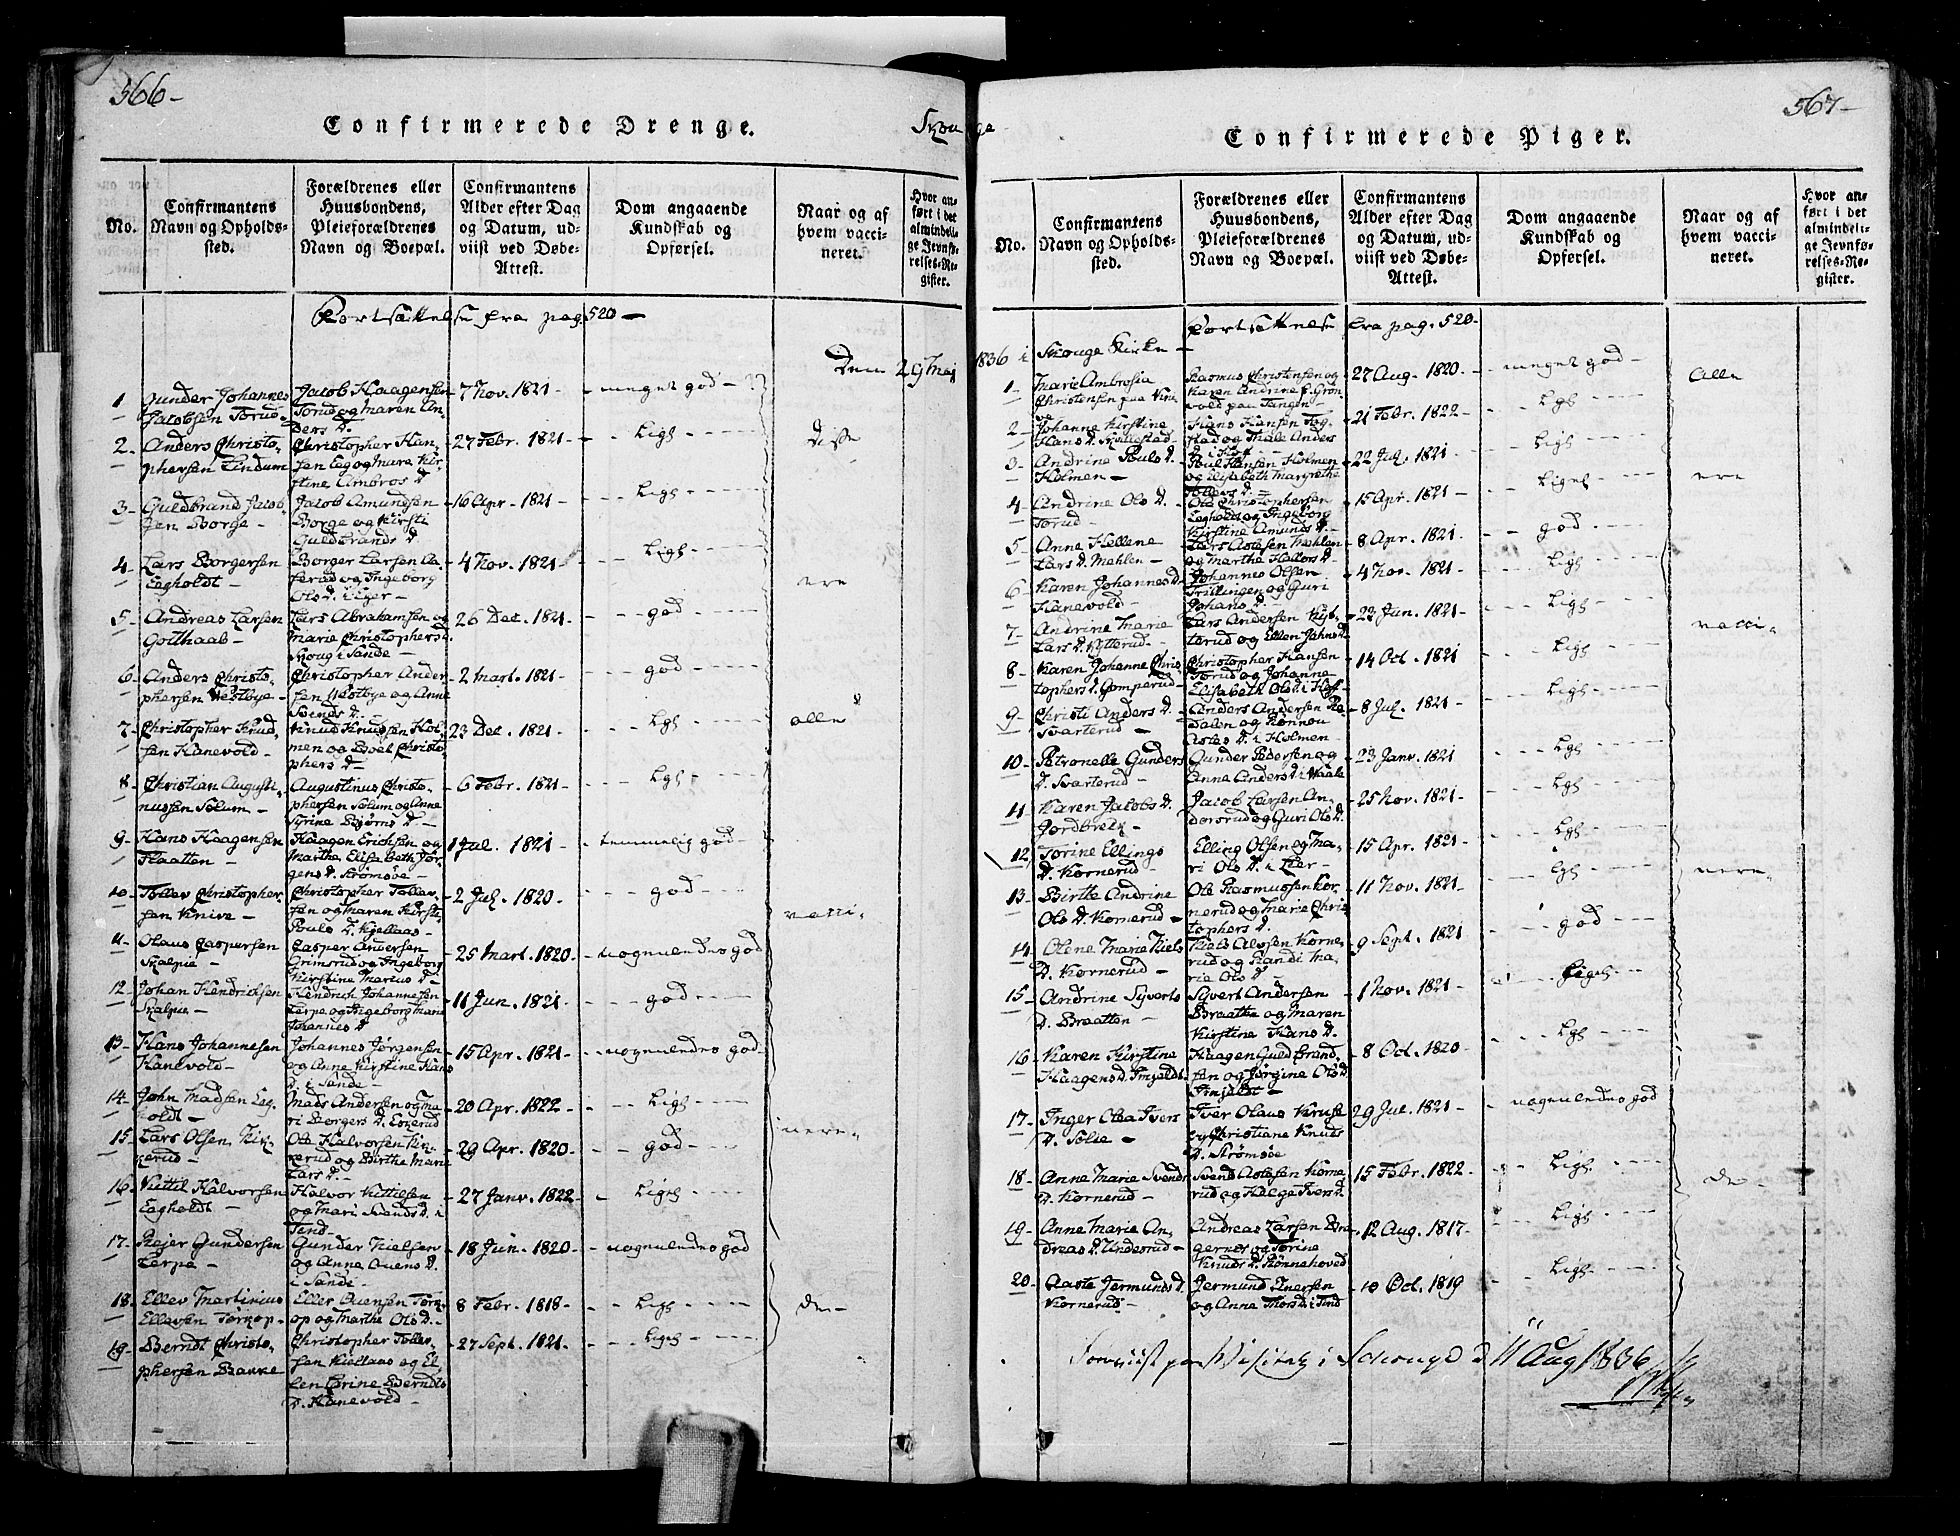 566-
Confirmerede Drenge.
Skouge
No.
Confirmantens
Navn og Opholds-
sted.
Forældrenes eller
Huusbondens,
Pleieforældrenes
Navn og Boepæl.
Confirmantens
Alder efter Dag
og Datum, ud-
viist ved Døbe-
Attest.
Dom angaaende
Kundskab og
Opførsel.
Naar og af
hvem vacci-
neret.
Hvor an-
ført i det
almindeli-
ge Jevnfø-
relses-Re-
gister.
Fortsættelse fra pag. 520-
Den 29 Maj 1836 i Skouge Kirke
1 Gunder Johannes
Jacobsen Torud-
Jacob Haagensen
Torud og Maren An-
ders D.
7 Nov. 1821-
meget god
2. Anders Christo-
phersen Lindum
Christopher Han-
sen Eeg og Mare Kir-
stine Ambros D
27 Febr. 1821-
Lige
Disse
3. Guldbrand Jacob-
sen Borge-
Jacob Amundsen
Borge og Kirsti
Guldbrands D
16 Apr. 1821-
Lige
4. Lars Borgersen
Eegholdt-
Borger Larsen
og Ingeborg
Ols D. i Eger-
4 Nov. 1821-
Lige
ere
5. Andreas Larsen
Gotthaab-
Lars Abrahamsen og
Marie Christophers D.
Skoug i Sande-
26 Dec. 1821-
god
6. Anders Christo-
phersen Westbye-
Christopher Ander-
sen Westbye og Anne
Svends D.
2 Mart. 1821-
god
7. Christopher Knud-
sen Hanevold-
Knud Knudsen Hol-
men og Boel Christo-
phers D-
23 Dec. 1821-
Lge
alle
8 Christian Augusti-
nussen Solum-
Augustinus Christo-
phersen Solum og Anne
Syrine Bjørns D-
6 Febr. 1821-
Lge
9. Hans Haagensen
Flaatten-
Haagen Erichsen og
Marthe Elisabeth Jør-
gens D. Strømsøe-
1 Jul. 1821-
temmelig god-
10. Tollev Christopher-
sen Knive-
Christopher Tollev-
sen og Maren Kirsti-
Pouls D. Kjellaas-
2 Jul. 1820-
god
vacci-
11. Olaus Caspersen
Skalpie-
Casper Andersen
Grimsrud og Ingeborg
Kirstine Marius D-
25 Mart. 1820-
nogenledes god
12. Johan Hendriksen
Skalpie-
Hendrich Johannesen
Lerpe og Ingeborg Marie
Johannes D
11 Jun. 1821-
god
13. Hans Johannesen
Hanevold-
Johannes Jørgensen
og Anne Kirstine Hans
D. i Sande-
15 Apr. 1821-
nogenledes god-
14. John Madsen Eeg-
holdt-
Mads Andersen og Ma-
ri Borgers D. Eskerud
20 Apr. 1822-
Lige
15. Lars Olsen
Ole Halvorsen
og Birthe Marie
Lars D.-
29 Apr. 1820-
god
nere-
16. Kittil Halvorsen
Eegholdt-
Halvor Kittilsen
og Mari Svends D. i
Tind-
27 Janv. 1822-
Liges
17. Rejer Gundersen
Lerpe-
Gunder Nielsen
og Anne Auens D.
i Sande-
18 Jun. 1820-
nogenledes god
18. Ellev Martinius
Ellevsen Torkop-
Ellev Evensen Tork-
op og Marthe Ols D.-
8 Febr. 1818-
Lige
de-
19. Berndt Christo-
phersen Bakke
Christopher Tollev-
sen Kiellaas og El-
len Torine Berndts
D. Hanevold-
27 Sept. 1821-
Liges
567-
Confirmerede Piger.
No.
Confirmantens
Navn og Opholds-
sted.
Forældrenes eller
Huusbondens,
Pleieforældrenes
Navn og Boepæl.
Confirmantens
Alder efter Dag
og Datum, ud-
viist ved Døbe-
Attest.
Dom angaaende
Kundskab og
Opførsel.
Naar og af
hvem vacci-
neret.
Hvor an-
ført i det
almindeli-
ge Jevnfø-
relses-Re-
gister.
Fortsættelse fra pag. 520-
1 Marie Ambrosia
Christensen paa Kni-
ve
Rasmus Christensen og
Karen Andrine f. Grøn-
vold paa Tangen-
27 Aug. 1820-
meget god-
Alle
2- Johanne Kirstine
Hans D. Skallestad
Hans Hansen
og Thale Anders
D i Hoff-
21 Febr. 1822-
Lge
3- Andrine Pouls D.
Holmen-
Poul Hansen Holmen
og Elisabeth Margrethe
Tollevs D.-
22 Jul. 1821-
Lige
4- Andrine Ols D.
Torud-
Ole Christophersen
Eegholdt og Ingeborg
Kirstine Amunds D-
15 Apr. 1821-
Liges
ere
5- Anne Hellene
Lars D. Mæhlen-
Lars Aslesen Mæhlen
og Marthe Hallors D.
8 Apr. 1821-
god
6- Karen Johannes D.
Hanevold-
Johannes Olsen
Trillingen og Guri
Johans D.-
4 Nov. 1821-
Lige
7- Andrine Marie
Lars D. Kytterud-
Lars Andersen Kyt-
terud og Ellen Johns D
22 Jun. 1821-
Lige
vacci-
8- Karen Johanne Chris-
tophers D. Gomperud-
Christopher Hansen
Torud og Johanne
Elisabeth Ols D. i Hoff-
14 Oct. 1821
Lige
9- Christi Anders D.
Svarterud-
Anders Andersen Re-
dalen og Rønnou
Asles D. i Holmen-
8 Jul. 1821-
Lige
10- Petronelle Gunders
D. Svarterud-
Gunder Pedersen og
Anne Anders D i Waale
23 Janv. 1821
Lge
11- Karen Jacobs D.
Jordbrek-
Jacob Larsen An-
dorsrud og Guri Ols D.-
25 Nov. 1821-
Lge
12. Torine Ellings
D. Kornerud-
Elling Olsen og Ma-
ri Ols D. i Lier-
15 Apr. 1821-
Lge
13- Birthe Andrine
Ols D. Kornerud-
Ole Rasmussen Kor-
nerud og Marie Chris-
tophers D.
11 Nov. 1821-
Lge
nere-
14- Olene Marie Niels
D. Kornerud-
Niels Alvsen Korne-
rud og Randi Ma-
rie Ols D-
9 Sept. 1821
god
15- Andrine Syverts
D. Braatten-
Syvert Andersen
Braathe og Maren
Kirstine Hans D.
1 Nov. 1821-
Liges
16- Karen Kirstine
Haagens D.
Haagen Guldbrand-
sen og Jørgine Ols D.
8 Oct. 1820-
Lge
17- Inger Olea Ivers
D. Solie-
Iver Olaus Kruse
og Christiane Knuds
D. Strømsøe
29 Jul. 1821-
nogenledes god
18- Anne Marie Svends
D. Kornerud-
Svend Aslesen Korne-
rud og Helge Ivers D.
15 Febr. 1822-
Lige
de-
19- Anne Marie An-
dreas D. Underrud-
Andreas Larsen Bra-
gernes og Torine
Knuds D. Rønnehoved
12 Aug. 1817-
Lige
20- Aaste Jermunds D.
Kornerud-
Jermund Enersen
og Anne Thors D. i Tind
10 Oct. 1819
Lige
Foreviist paa Visitatz i Schouge d 11 Aug 1836